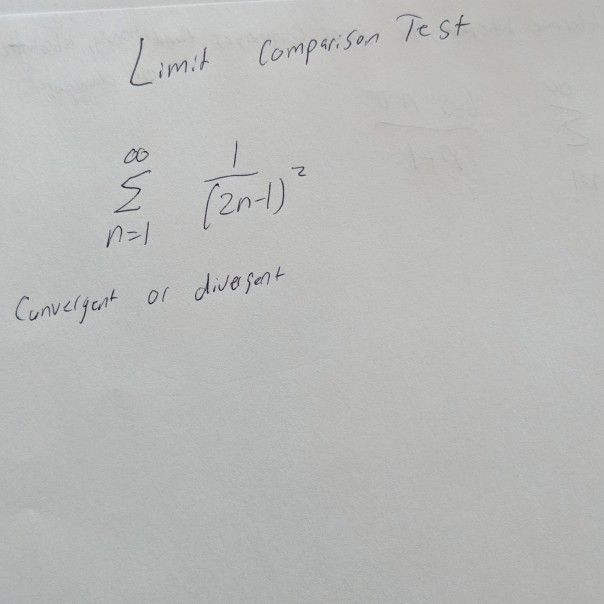 Limit Comparison Test
∞
Σ 1/(2n-1)²
n=1
Convergent or divergent